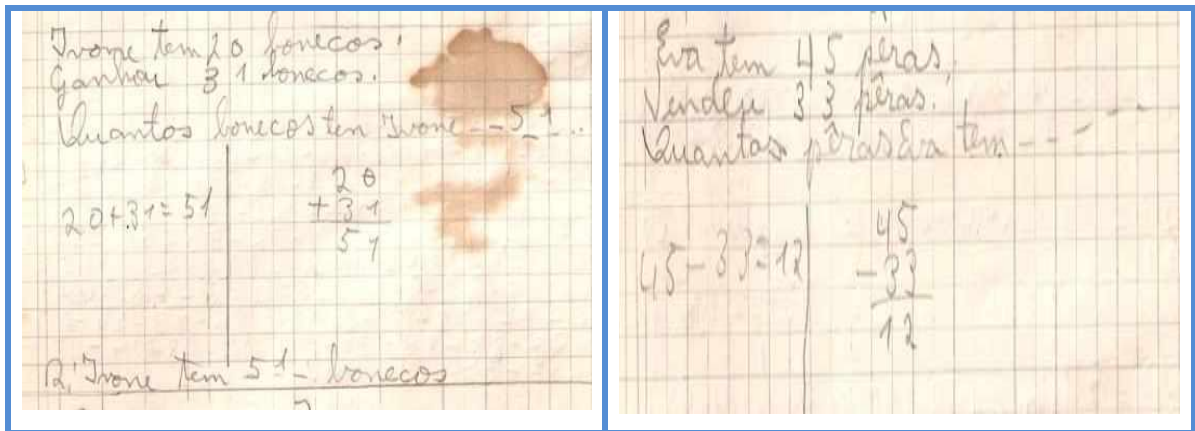 Ivone tem 20 bonecos.
Ganhou 31 bonecos.
Quantos bonecos ten Ivone -- 51 ..
20+31=51
20
+31
51
R: Ivone tem 51 - bonecos
Eva tem 45 pêras,
Vendeu 33 pêras.
Quantas pêras Eva tem - - - -
45-33=12
45
-33
12